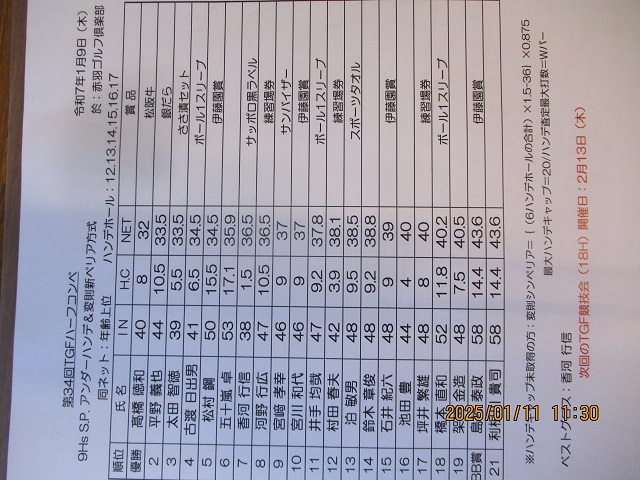 第34回TGFハーフコンペ
令和7年1月9日（木）
9Hs S.P. アンダーハンデ＆変則新ペリア方式
於：赤羽ゴルフ倶楽部
同ネット：年齢上位
ハンデホール：12.13.14.15.16.17
順位 氏名 IN H.C NET 賞品
優勝 髙橋 徳和 40 8 32 松阪牛
2 平野 義也 44 10.5 33.5 銀だら
3 太田 智徳 39 5.5 33.5 ささ漬セット
4 古渡 日出男 41 6.5 34.5 ボール1スリーブ
5 松村 鋼 50 15.5 34.5 伊藤園賞
6 五十嵐 卓 53 17.1 35.9
7 香河 行信 38 1.5 36.5 サッポロ黒ラベル
8 河野 行広 47 10.5 36.5 練習場券
9 宮﨑 孝幸 46 9 37 サンバイザー
10 宮川 和代 46 9 37 伊藤園賞
11 井手 均哉 47 9.2 37.8 ボール1スリーブ
12 村田 春夫 42 3.9 38.1 練習場券
13 泊 敏男 48 9.5 38.5 スポーツタオル
14 鈴木 章俊 48 9.2 38.8
15 石井 紀六 48 9 39 伊藤園賞
16 池田 豊 44 4 40
17 坪井 繁雄 48 8 40 練習場券
18 橋本 直和 52 11.8 40.2 ボール1スリーブ
19 金造 48 7.5 40.5
BB賞 島 泰政 58 14.4 43.6 伊藤園賞
21 利根 貴司 58 14.4 43.6
※ハンディキャップ未取得の方：変則シンペリア＝｛（6ハンデホールの合計）×1.5-36｝×0.875
最大ハンデキャップ＝20/ハンデ査定最大打数＝Wパー
ベストグロス：香河 行信
次回のTGF競技会（18H）開催日：2月13日（木）
2025/01/11 11:30